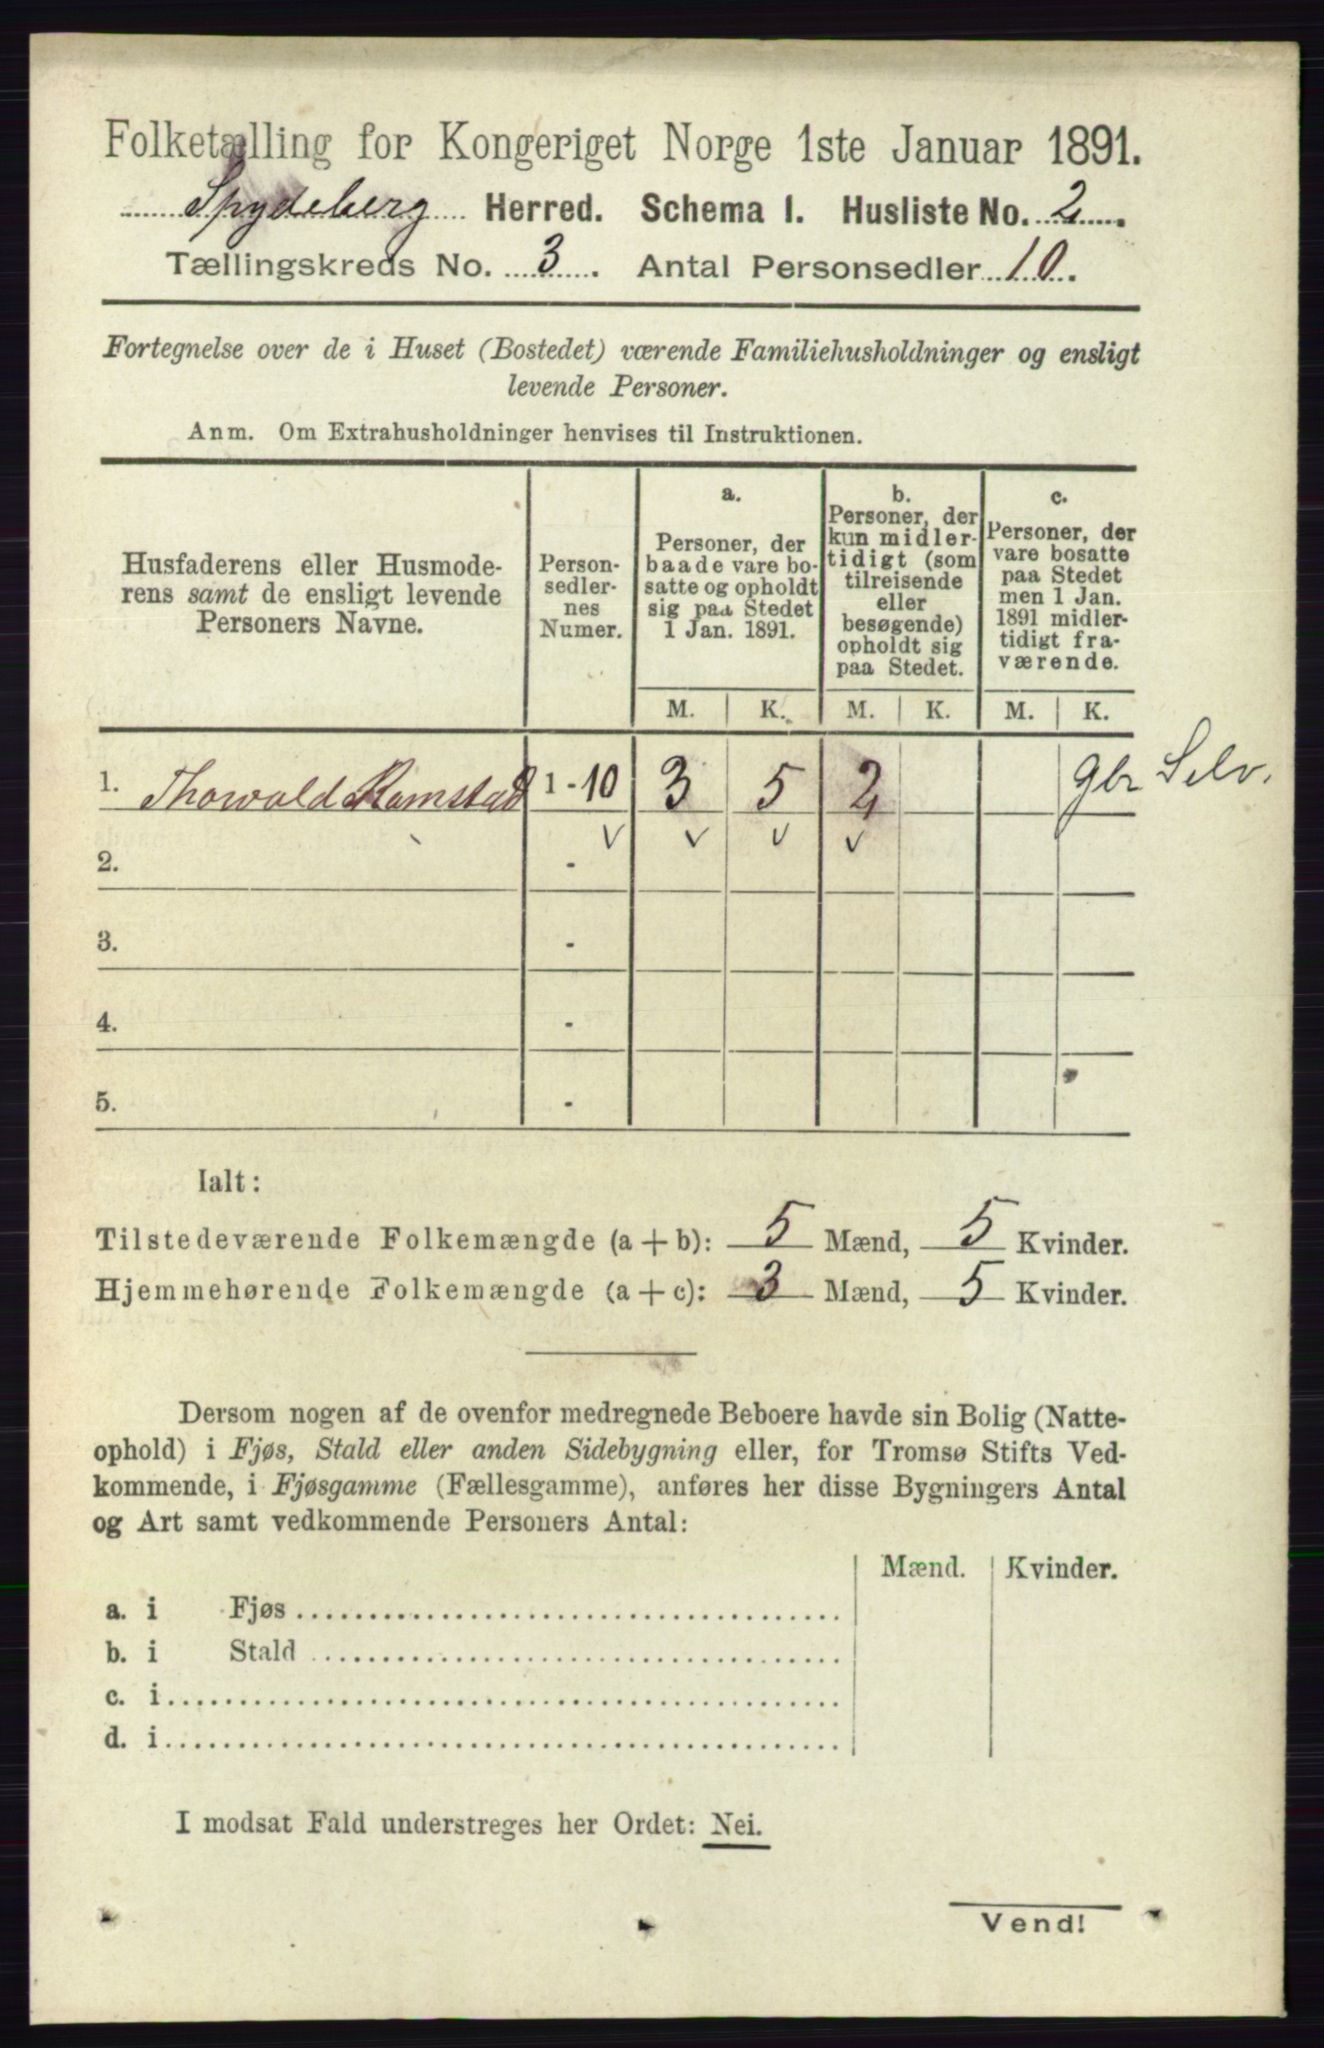 Folketælling for Kongeriget Norge 1ste Januar 1891.
Spydeberg Herred. Schema I. Husliste No. 2.
Tællingskreds No. 3. Antal Personsedler 10.
Fortegnelse over de i Huset (Bostedet) værende Familiehusholdninger og ensligt
levende Personer.
Anm. Om Extrahusholdninger henvises til Instruktionen.
Husfaderens eller Husmode-
rens samt de ensligt levende
Personers Navne.
Person-
sedler-
nes
Numer.
a.
Personer, der
baade vare bo-
satte og opholdt
sig paa Stedet
1 Jan. 1891.
b.
Personer, der
kun midler-
tidigt (som
tilreisende
eller
besøgende)
opholdt sig
paa Stedet.
c.
Personer, der
vare bosatte
paa Stedet
men 1 Jan.
1891 midler-
tidigt fra-
værende.
M. K. M. K. M. K.
1. Thorvald Ramstad 1 - 10 3 5 2 gbr Selv.
2. -
3. -
4. -
5. -
Ialt:
Tilstedeværende Folkemængde (a + b): 5 Mænd, 5 Kvinder.
Hjemmehørende Folkemængde (a + c): 3 Mænd, 5 Kvinder.
Dersom nogen af de ovenfor medregnede Beboere havde sin Bolig (Natte-
ophold) i Fjøs, Stald eller anden Sidebygning eller, for Tromsø Stifts Ved-
kommende, i Fjøsgamme (Fællesgamme), anføres her disse Bygningers Antal
og Art samt vedkommende Personers Antal:
Mænd. Kvinder.
a. i Fjøs
b. i Stald
c. i
d. i
I modsat Fald understreges her Ordet: Nei.
Vend!